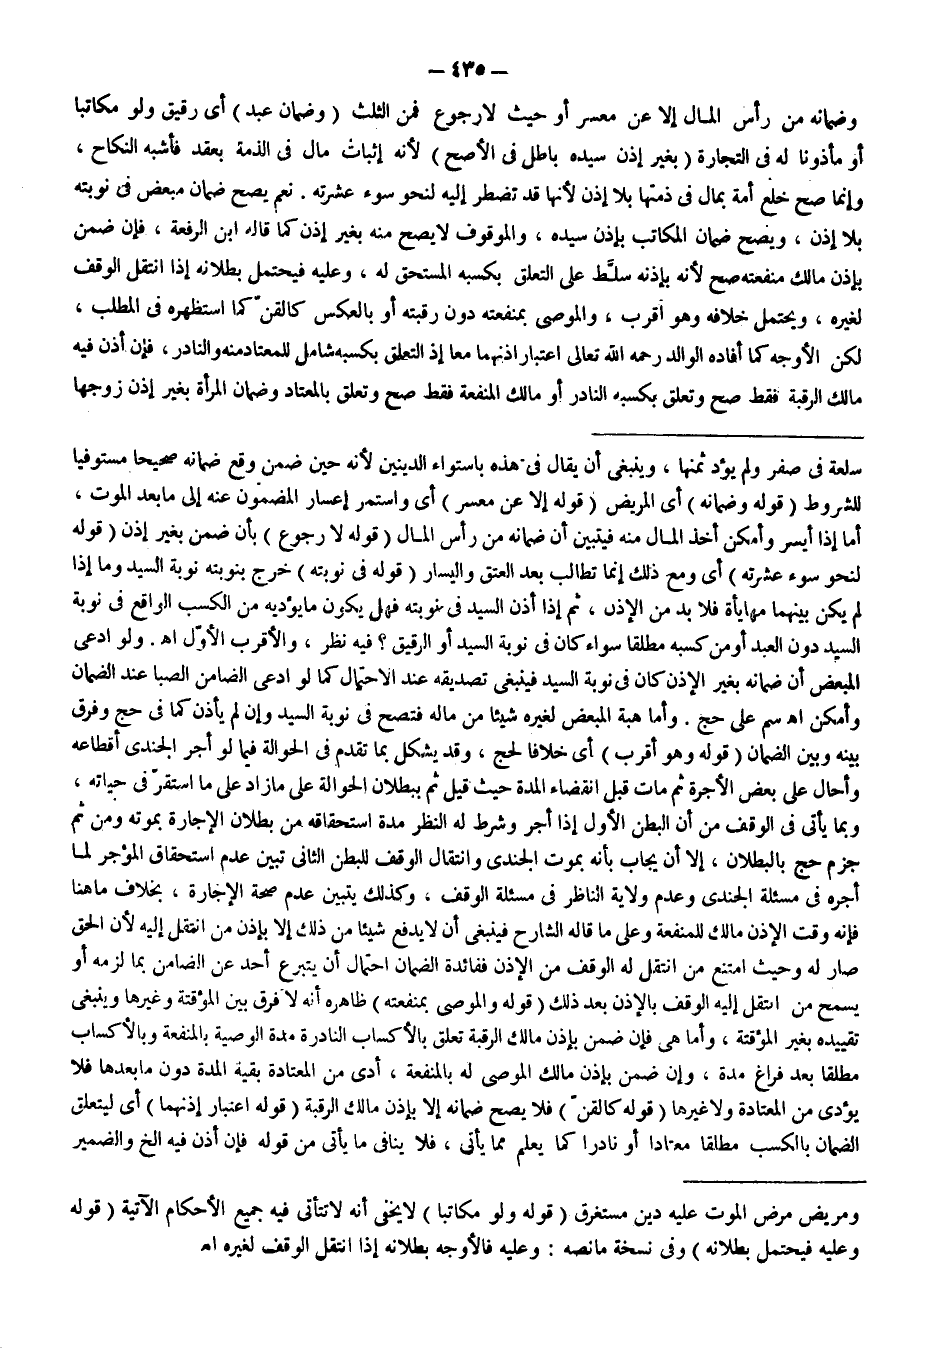 — ٤٣٥ —
وضمانه من رأس المال إلا عن معسر أو حيث لارجوع فمن الثلث ( وضمان عبد ) أى رقيق ولو مكاتبا
أو مأذونا له فى التجارة ( بغير إذن سيده باطل فى الأصح ) لأنه إثبات مال فى الذمة بعقد فأشبه النكاح ،
وإنما صح خلع أمة بمال فى ذمتها بلا إذن لأنها قد تضطر إليه لنحو سوء عشرته . نعم يصح ضمان مبعض فى نوبته
بلا إذن ، ويصح ضمان المكاتب بإذن سيده ، والموقوف لايصح منه بغير إذن كما قاله ابن الرفعة ، فإن ضمن
بإذن مالك منفعته صح لأنه بإذنه سلَّط على التعلق بكسبه المستحق له ، وعليه فيحتمل بطلانه إذا انتقل الوقف
لغيره ، ويحتمل خلافه وهو أقرب ، والموصى بمنفعته دون رقبته أو بالعكس كالقنّ كما استظهره فى المطلب ،
لكن الأوجه كما أفاده الوالد رحمه الله تعالى اعتبار اذنهما معا إذ التعلق بكسبه شامل للمعتاد منه والنادر ، فإن أذن فيه
مالك الرقبة فقط صح وتعلق بكسبه النادر أو مالك المنفعة فقط صح وتعلق بالمعتاد وضمان المرأة بغير إذن زوجها
سلعة فى صفر ولم يؤد ثمنها ، وينبغى أن يقال فى هذه باستواء الدينين لأنه حين ضمن وقع ضمانه صحيحا مستوفيا
للشروط ( قوله وضمانه ) أى المريض ( قوله إلا عن معسر ) أى واستمر إعسار المضمون عنه إلى مابعد الموت ،
أما إذا أيسر وأمكن أخذ المال منه فيتبين أن ضمانه من رأس المال ( قوله لا رجوع ) بأن ضمن بغير إذن ( قوله
لنحو سوء عشرته ) أى ومع ذلك إنما تطالب بعد العتق واليسار ( قوله فى نوبته ) خرج بنوبته نوبة السيد وما إذا
لم يكن بينهما مهايأة فلا بد من الإذن ، ثم إذا أذن السيد فى نوبته فهل يكون مايؤديه من الكسب الواقع فى نوبة
السيد دون العبد أو من كسبه مطلقا سواء كان فى نوبة السيد أو الرقيق ؟ فيه نظر ، والأقرب الأوّل اه . ولو ادعى
المبعض أن ضمانه بغير الإذن كان فى نوبة السيد فينبغى تصديقه عند الاحتمال كما لو ادعى الضامن الصبا عند الضمان
وأمكن اه سم على حج . وأما هبة المبعض لغيره شيئا من ماله فتصح فى نوبة السيد وإن لم يأذن كما فى حج وفرق
بينه وبين الضمان ( قوله وهو أقرب ) أى خلافا لحج ، وقد يشكل بما تقدم فى الحوالة فيما لو أجر الجندى أقطاعه
وأحال على بعض الأجرة ثم مات قبل انقضاء المدة حيث قيل ثم ببطلان الحوالة على مازاد على ما استقرّ فى حياته ،
وبما يأتى فى الوقف من أن البطن الأول إذا أجر وشرط له النظر مدة استحقاقه من بطلان الإجارة بموته ومن ثم
جزم حج بالبطلان ، إلا أن يجاب بأنه بموت الجندى وانتقال الوقف للبطن الثانى تبين عدم استحقاق المؤجر لما
أجره فى مسئلة الجندى وعدم ولاية الناظر فى مسئلة الوقف ، وكذلك يتبين عدم صحة الإجارة ، بخلاف ماهنا
فإنه وقت الإذن مالك للمنفعة وعلى ما قاله الشارح فينبغى أن لايدفع شيئا من ذلك إلا بإذن من انتقل إليه لأن الحق
صار له وحيث امتنع من انتقل له الوقف من الإذن ففائدة الضمان احتمال أن يتبرع أحد عن الضامن بما لزمه أو
يسمح من انتقل إليه الوقف بالإذن بعد ذلك ( قوله والموصى بمنفعته ) ظاهره أنه لا فرق بين المؤقتة وغيرها وينبغى
تقييده بغير المؤقتة ، وأما هى فإن ضمن بإذن مالك الرقبة تعلق بالأكساب النادرة مدة الوصية بالمنفعة وبالأكساب
مطلقا بعد فراغ مدة ، وإن ضمن بإذن مالك الموصى له بالمنفعة ، أدى من المعتادة بقية المدة دون مابعدها فلا
يؤدى من المعتادة ولاغيرها ( قوله كالقنّ ) فلا يصح ضمانه إلا بإذن مالك الرقبة ( قوله اعتبار إذنهما ) أى ليتعلق
الضمان بالكسب مطلقا معتادا أو نادرا كما يعلم مما يأتى ، فلا ينافى ما يأتى من قوله فإن أذن فيه الخ والضمير
ومريض مرض الموت عليه دين مستغرق ( قوله ولو مكاتبا ) لايخفى أنه لاتتأتى فيه جميع الأحكام الآتية ( قوله
وعليه فيحتمل بطلانه ) وفى نسخة مانصه : وعليه فالأوجه بطلانه إذا انتقل الوقف لغيره اه